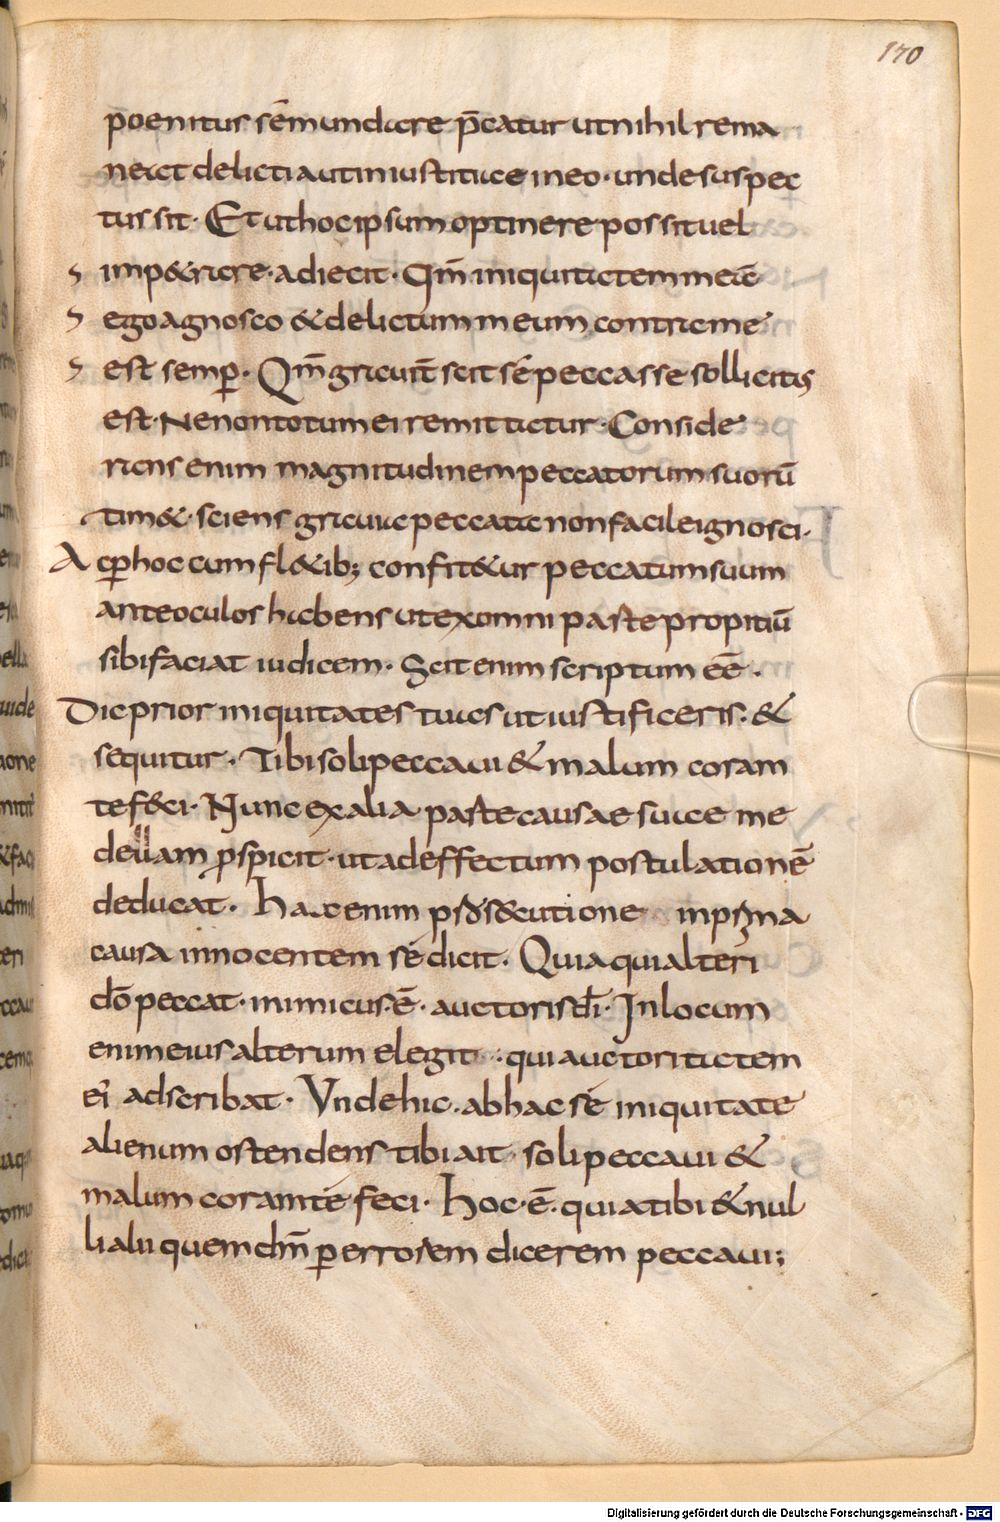 170
poenitur sēmundare p̄catur utnihil rema
neat delicti aut iniustitiae ineo · unde suspec
tus sit · Et ut hoc ipsum optinere possit uel
imp&rare · adiecit · Qm̄ iniquitatem meā
ego agnosco & delictum meum contra me
est semꝑ · Qm̄ grauit̄ scit sē peccasse sollicitus
est · Ne non totum ei remittatur · Conside
rans enim magnitudinem peccatorum suorū
tim& · sciens grauia peccata non facile ignosci ·
Ac ꝑ hoc cum fl&ib; confit&ur peccatum suum
ante oculos habens ut ex omni parte propitiū
sibi faciat iudicem · Scit enim scriptum eē ·
Dic prior iniquitates tuas ut iustificeris · &
sequitur · Tibi soli peccaui & malum coram
te feci · Nunc ex alia parte causae suae me
dellam ꝓspicit · ut ad effectum postulationē
deducat · Hac enim ꝑs&cutione in prima
causa innocentem sé dicit · Quia qui alteri
dō peccat · inimicus ē · auctoris dī · In locum
enim eius alterum elegit · qui auctoritatem
ei adscribat · Unde hic · ab hac sé iniquitate
alienum ostendens tibi ait · soli peccaui &
malum coram té feci · Hoc · ē · quia tibi & nul
li alii quem dm̄ ꝑ errorem dicerem peccaui;
Digitalisierung gefördert durch die Deutsche Forschungsgemeinschaft - DFG